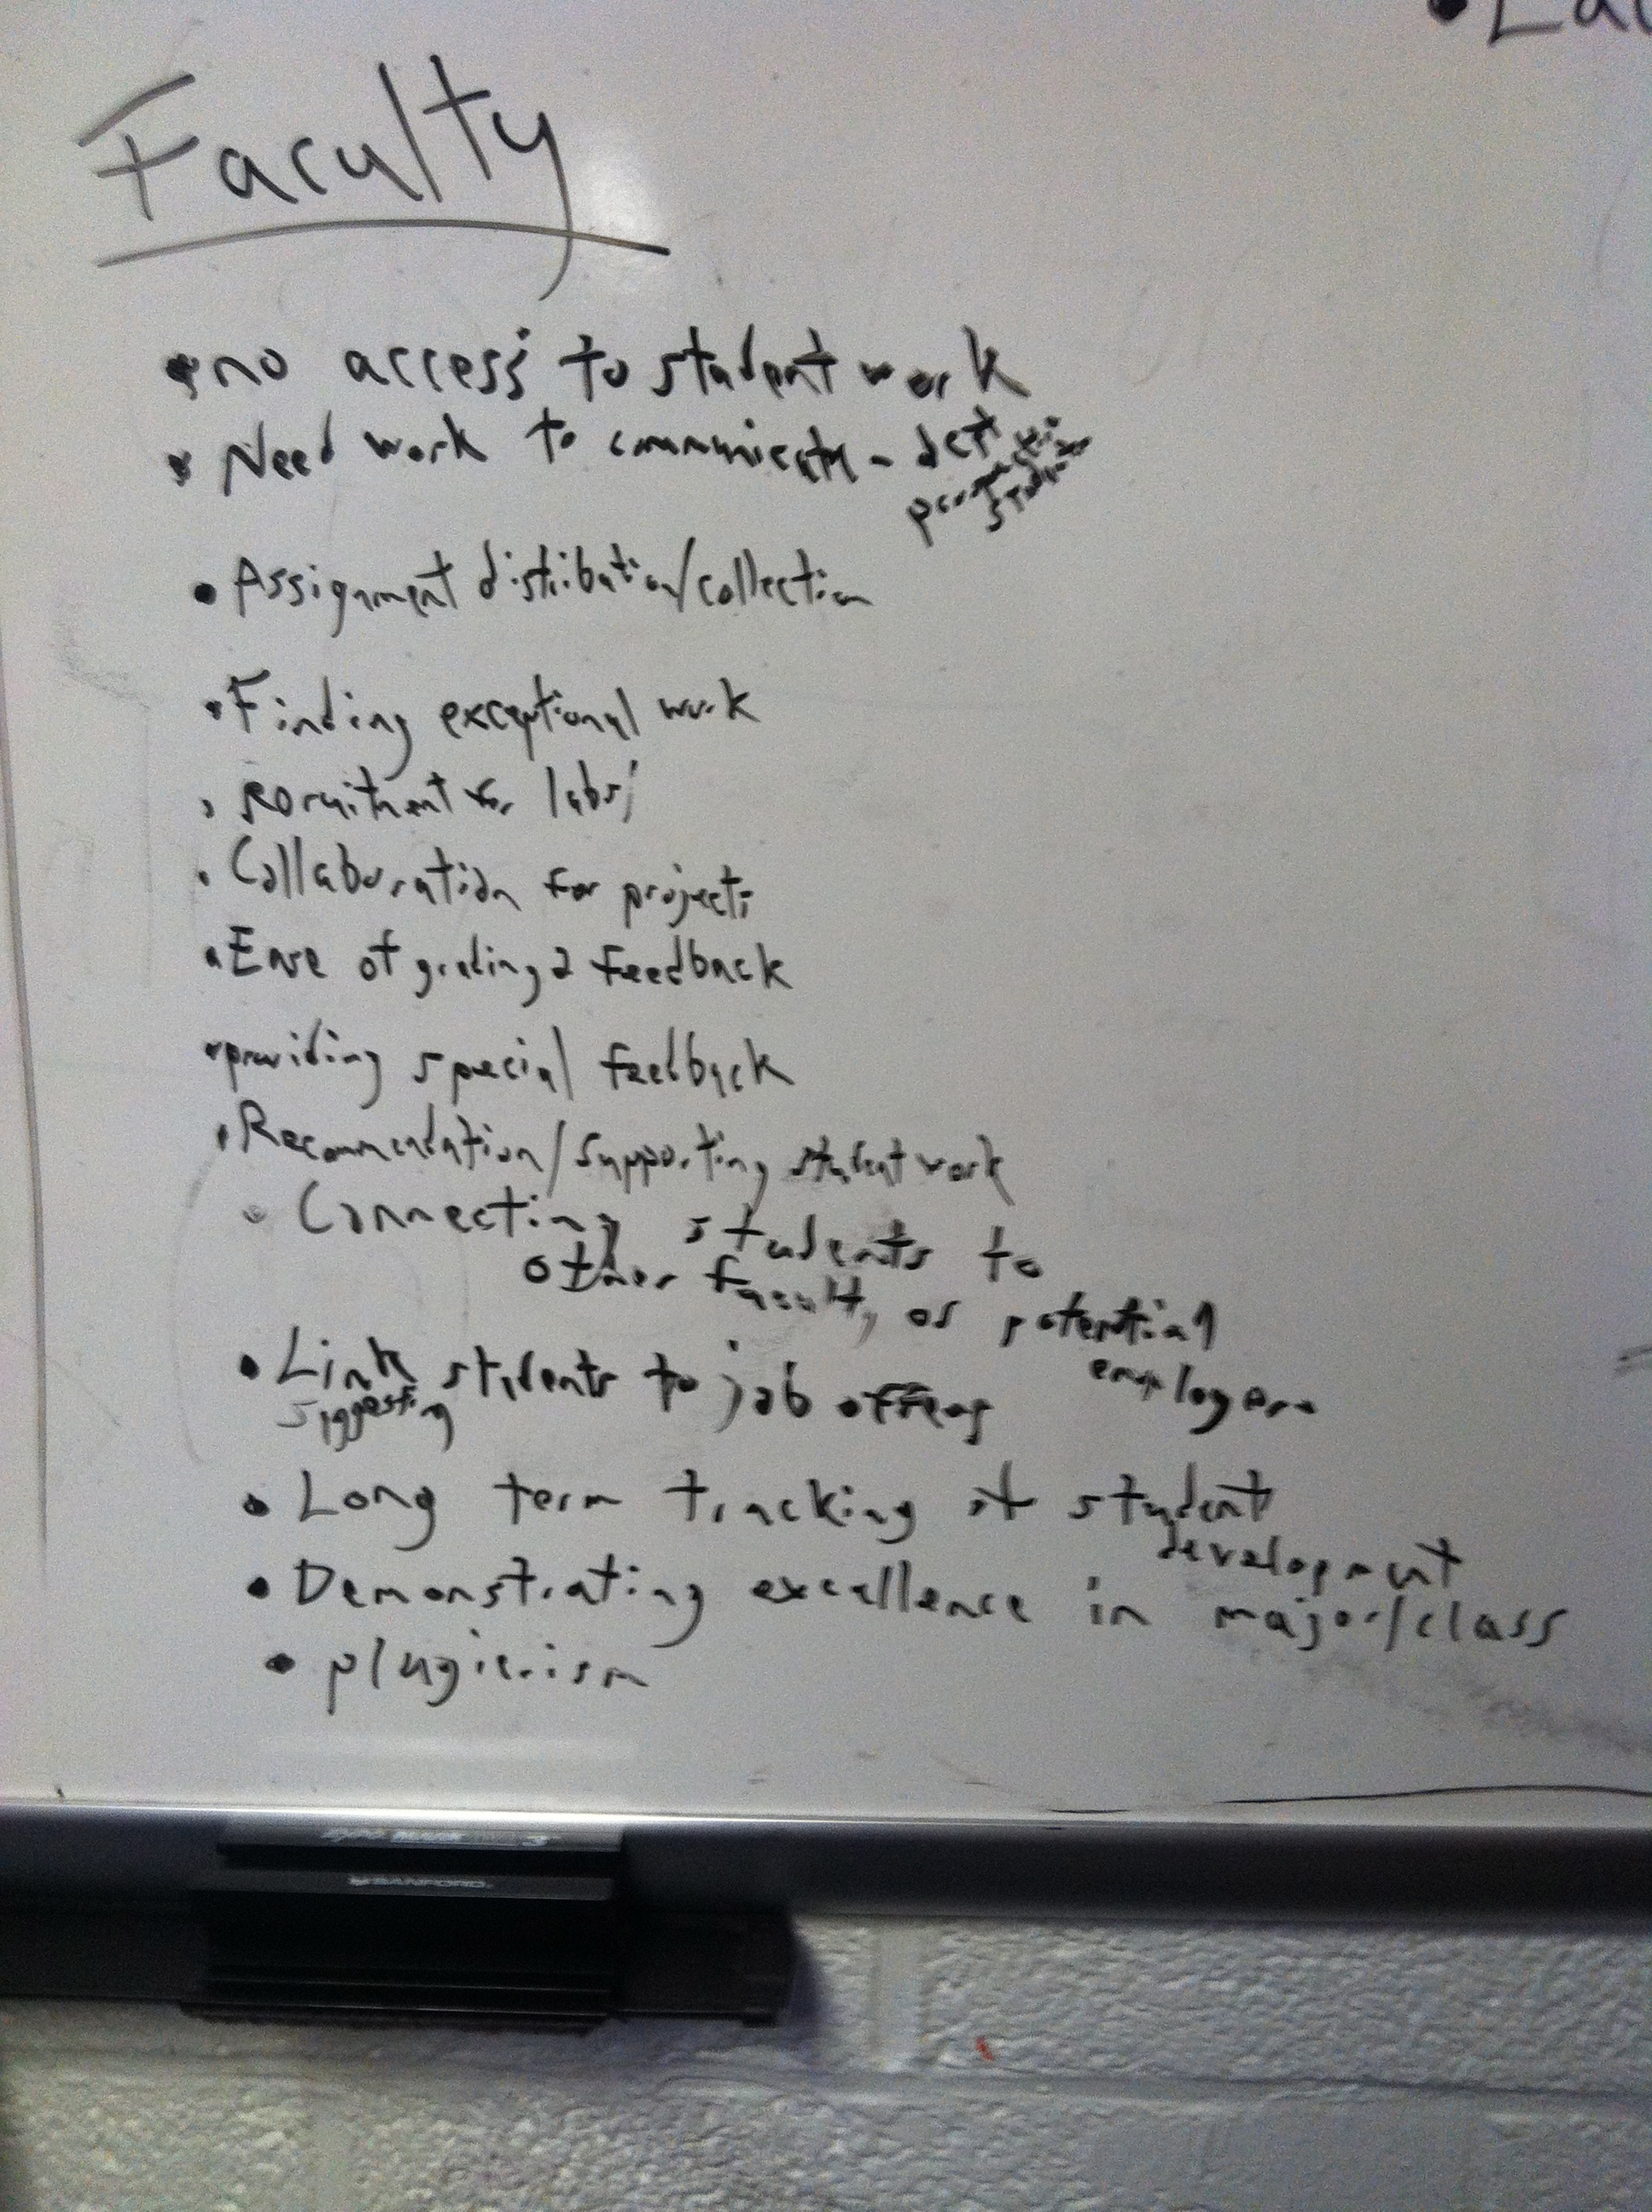 Faculty
• no access to student work
• Need work to communicate - dept
• Assignment distribution/collection
• Finding exceptional work
• recruitment for labs
• Collaboration for projects
• Ease of grading & feedback
• providing special feedback
• Recommendation/supporting student work
• Connecting students to
other faculty or potential
employers
• Link students to job offers
suggesting
• Long term tracking of student
development
• Demonstrating excellence in major/class
• plagierism
SANFORD